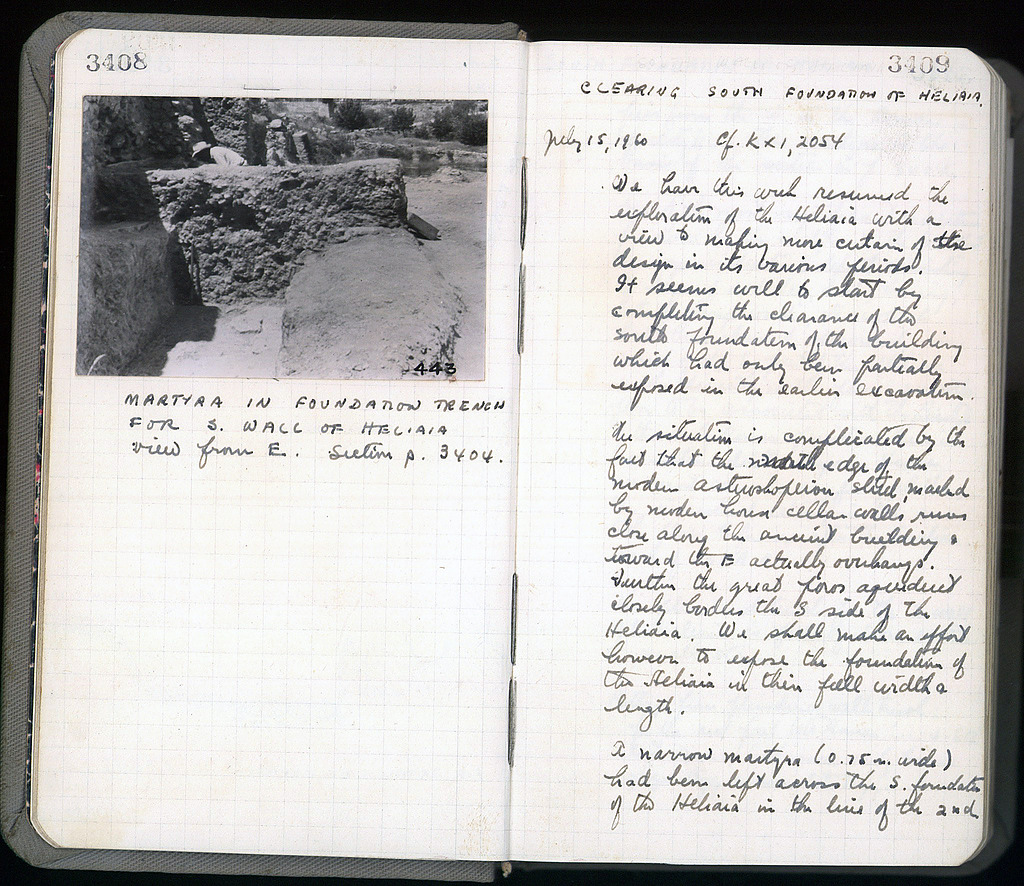 3408
443
MARTYRA IN FOUNDATION TRENCH
FOR S. WALL OF HELIAIA
view from E. Section p. 3404.
3409
CLEARING SOUTH FOUNDATION OF HELIAIA.
July 15, 1960 Cf. K XI, 2054
We have this week resumed the
exploration of the Heliaia with a
view to making more certain of the
design in its various periods.
It seems well to start by
completing the clearance of the
south foundation of the building
which had only been partially
exposed in the earlier excavation.
The situation is complicated by the
fact that the edge of the
modern Asteroskopeion street, marked
by modern house cellar walls, runs
close along the ancient building &
toward the E actually overhangs.
Further the great poros aqueduct
closely borders the S side of the
Heliaia. We shall make an effort
however to expose the foundation of
the Heliaia in their full width &
length.
A narrow martyra (0.75 m. wide)
had been left across the S. foundation
of the Heliaia in the line of the 2nd